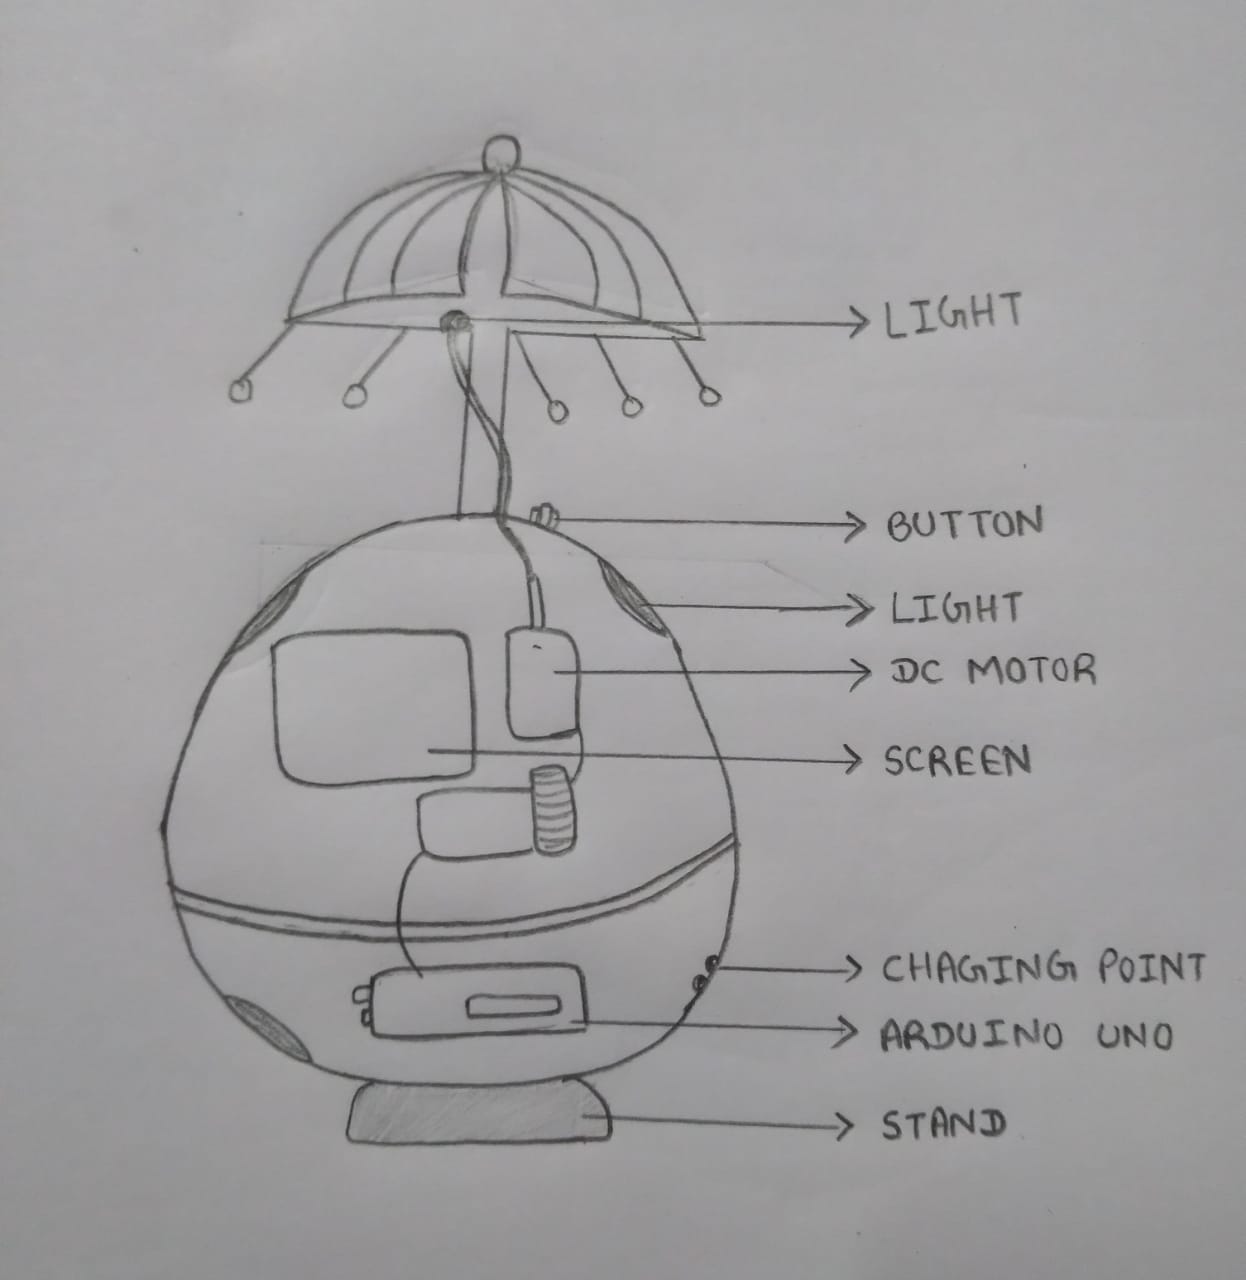 LIGHT
BUTTON
LIGHT
DC MOTOR
SCREEN
CHAGING POINT
ARDUINO UNO
STAND